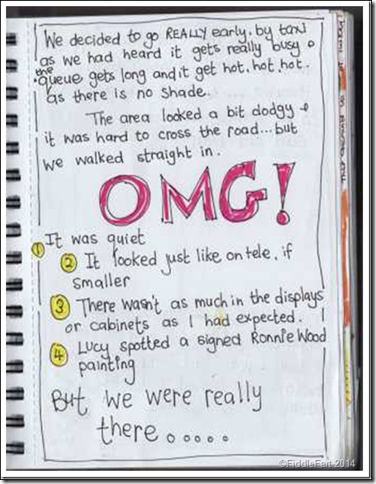 We decided to go REALLY early, by taxi
as we had heard it gets really busy &
the queue gets long and it get hot, hot, hot.
as there is no shade.
The area looked a bit dodgy &
it was hard to cross the road... but
we walked straight in.
OMG!
1 It was quiet
2 It looked just like on tele, if
smaller
3 There wasn't as much in the displays
or cabinets as I had expected.
4 Lucy spotted a signed Ronnie Wood
painting
But we were really
there .....
©FiddleFan 2014